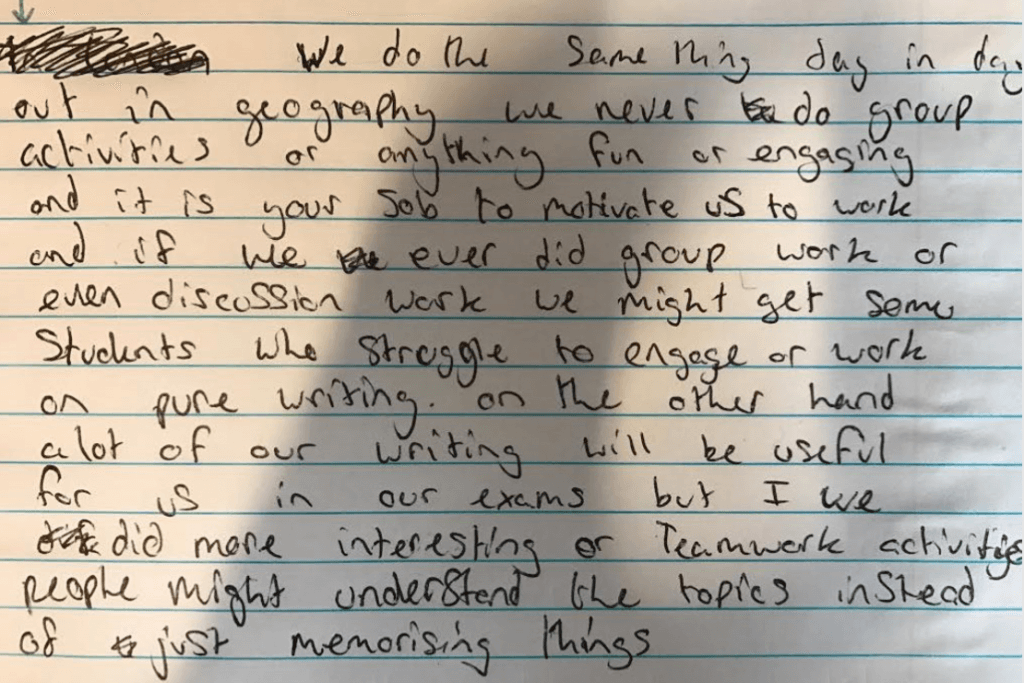 We do the same thing day in day
out in geography we never do group
activities or anything fun or engaging
and it is your Job to motivate us to work
and if we ever did group work or
even discussion work we might get some
Students who struggle to engage or work
on pure writing. on the other hand
a lot of our writing will be useful
for us in our exams but I we
did more interesting or Teamwork activities
people might understand the topics instead
of just memorising things